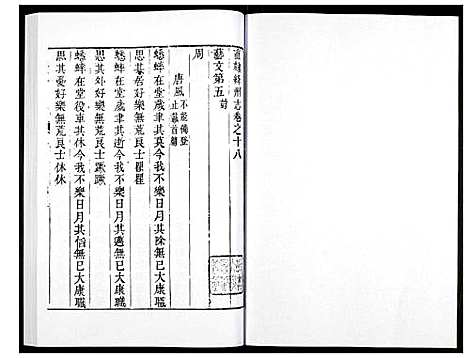 直隸絳州志卷之十八
藝文第五前
周
唐風 不能備登
止載首篇
蟋蟀在堂歲聿其莫今我不樂日月其除無已大康職
思其居好樂無荒良士瞿瞿
蟋蟀在堂歲聿其逝今我不樂日月其邁無已大康職
思其外好樂無荒良士蹶蹶
蟋蟀在堂役車其休今我不樂日月其慆無已大康職
思其憂好樂無荒良士休休